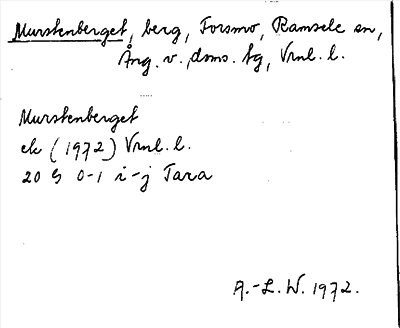 Murstenberget, berg, Forsmo, Ramsele sn,
Ång. v. doms. tg, Vrnl. l.
Murstenberget
ek (1972) Vrnl. l.
20 G 0-1 i-j Tara
A.-L. W. 1972.